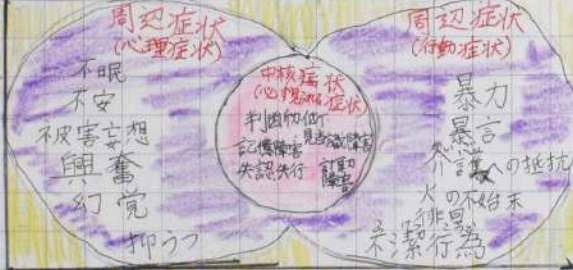 周辺症状
(心理症状)
不眠
不安
被害妄想
興奮
幻覚
抑うつ
中核症状
(必ず見られる症状)
判断力低下
見当識障害
記憶障害
失認失行
言動障害
周辺症状
(行動症状)
暴力
暴言
介護への抵抗
火の不始末
徘徊
不潔行為